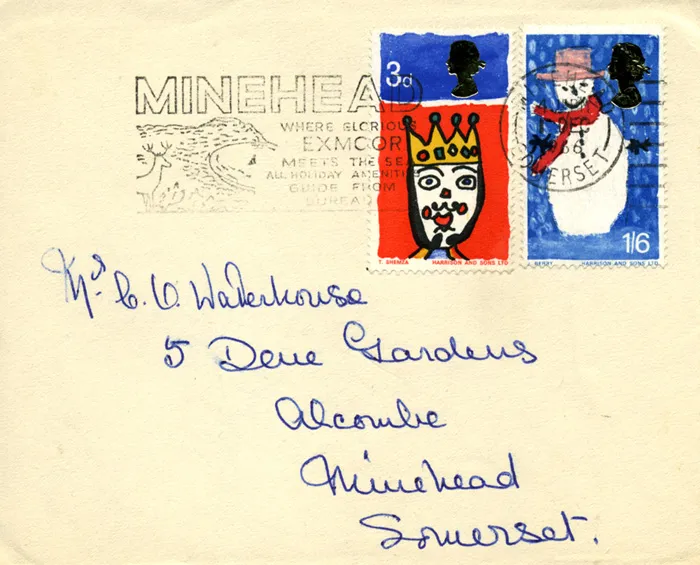 MINEHEAD
WHERE GLORIOUS
EXMOOR
MEETS THE SEA
ALL HOLIDAY AMENITIES
GUIDE FROM
BUREAU
3d
T. SHEMZA HARRISON AND SONS LTD
DEC
SOMERSET
1/6
BERRY HARRISON AND SONS LTD
Mrs C. V. Waterhouse
5 Dene Gardens
Alcombe
Minehead
Somerset.